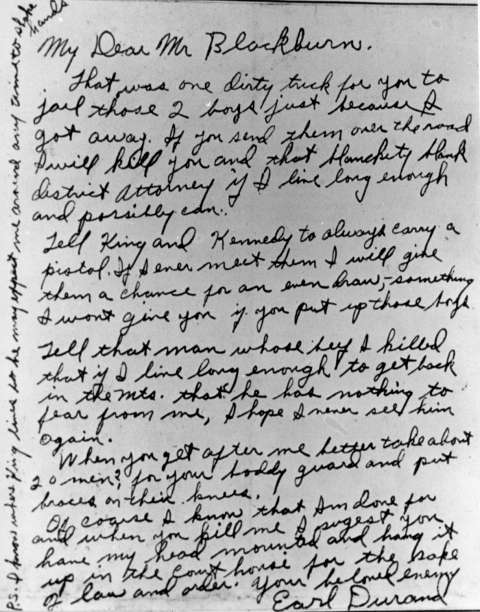 My Dear Mr Blackburn.
That was one dirty trick for you to
jail those 2 boys just because I
got away. If you send them over the road
I will kill you and that blanckity blank
district Attorney if I live long enough
and porsibly can.
Tell King and Kennedy to always carry a
pistol. If I ever meet them I will give
them a chance for an even draw,- something
I wont give you if you put up those boys
Tell that man whose bey I killed
that if I live long enough to get back
in the mts. that he has nothing to
fear from me, I hope I never see him
again.
When you get after me better take about
20 men? for your boddy guard and put
braces on their knees.
Of coarse I know that Im done for
and when you kill me I sugest you
have my head mounted and hang it
up in the court house for the sake
of law and order. Your beloved enemy
Earl Durand
P.S. I know where King lives so he may expect me around any time to shake
hands